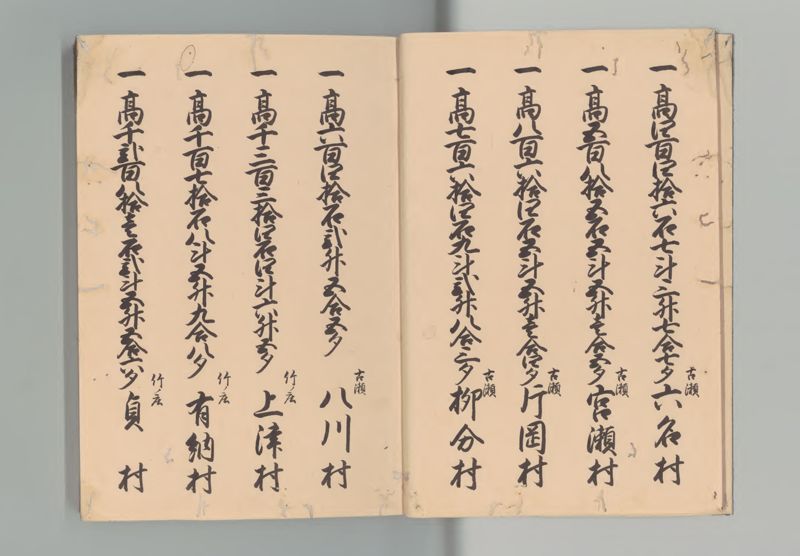 一 高四百四拾六石七斗二升七合七夕 古瀬 六名村
一 高五百八拾五石五斗五升壱合五夕 古瀬 宮瀬村
一 高八百六拾四石五斗五升壱合四夕 古瀬 片岡村
一 高七百六拾四石九斗弐升八合二夕 古瀬 柳分村
一 高六百四拾石弐升五合五夕 古瀬 八川村
一 高千三百三拾四石四斗六升五夕 竹ノ広 上津村
一 高千百七拾石八斗五升九合八夕 竹ノ広 有納村
一 高千弐百八拾壱石弐斗五升五合六夕 竹ノ広 貞村